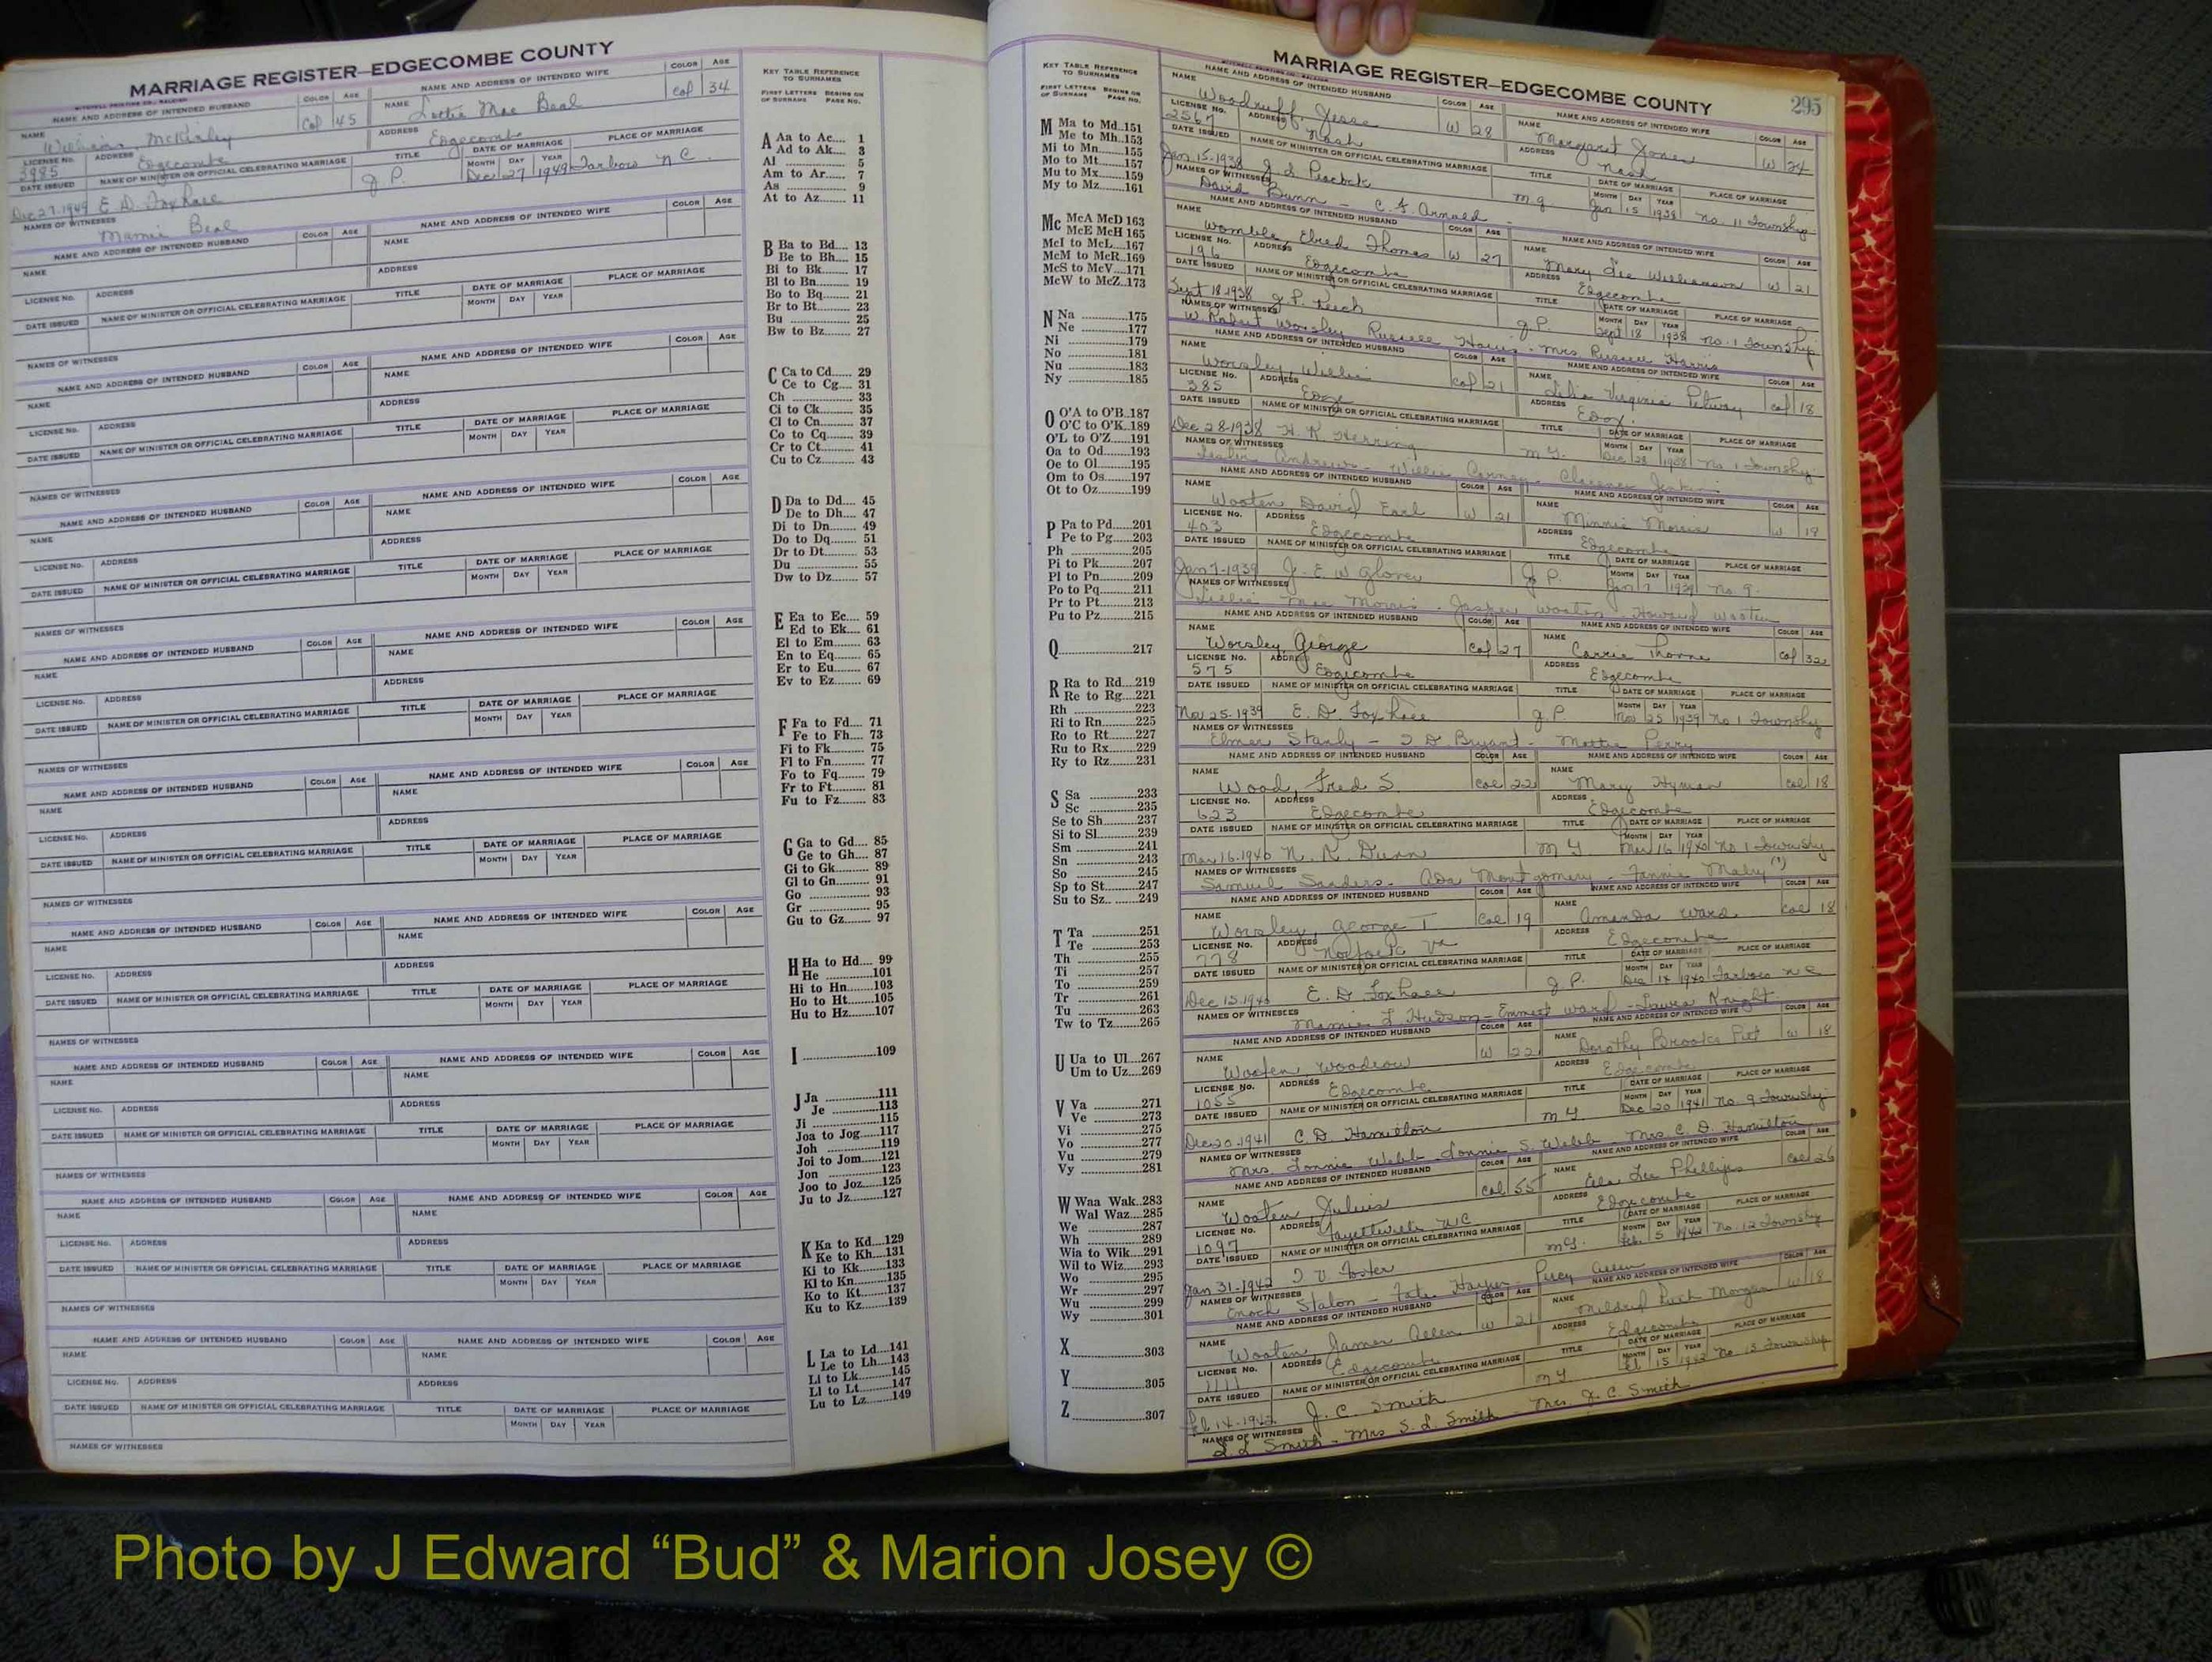 MARRIAGE REGISTER—EDGECOMBE COUNTY
NAME AND ADDRESS OF INTENDED HUSBAND COLOR AGE NAME AND ADDRESS OF INTENDED WIFE COLOR AGE
NAME Williams, McKinley Col 45 NAME Lottie Mae Beal Col 34
LICENSE No. 3985 ADDRESS Edgecombe ADDRESS Edgecombe
DATE ISSUED NAME OF MINISTER OR OFFICIAL CELEBRATING MARRIAGE TITLE DATE OF MARRIAGE MONTH DAY YEAR PLACE OF MARRIAGE
Dec 27-1949 E. D. Foxhall J P. Dec 27 1949 Tarboro N C.
NAMES OF WITNESSES Mamie Beal
KEY TABLE REFERENCE TO SURNAMES
FIRST LETTERS OF SURNAME BEGINS ON PAGE NO.
A Aa to Ac.... 1
Ad to Ak.... 3
Al 5
Am to Ar...... 7
As 9
At to Az...... 11
B Ba to Bd.... 13
Be to Bh.... 15
Bi to Bk....... 17
Bl to Bn........ 19
Bo to Bq....... 21
Br to Bt........ 23
Bu 25
Bw to Bz....... 27
C Ca to Cd..... 29
Ce to Cg.... 31
Ch 33
Ci to Ck........ 35
Cl to Cn........ 37
Co to Cq....... 39
Cr to Ct........ 41
Cu to Cz....... 43
D Da to Dd.... 45
De to Dh.... 47
Di to Dn....... 49
Do to Dq...... 51
Dr to Dt........ 53
Du 55
Dw to Dz...... 57
E Ea to Ec.... 59
Ed to Ek.... 61
El to Em....... 63
En to Eq....... 65
Er to Eu........ 67
Ev to Ez........ 69
F Fa to Fd.... 71
Fe to Fh.... 73
Fi to Fk......... 75
Fl to Fn......... 77
Fo to Fq........ 79
Fr to Ft......... 81
Fu to Fz........ 83
G Ga to Gd.... 85
Ge to Gh.... 87
Gi to Gk........ 89
Gl to Gn........ 91
Go 93
Gr 95
Gu to Gz....... 97
H Ha to Hd.... 99
He 101
Hi to Hn.......103
Ho to Ht.......105
Hu to Hz.......107
I 109
J Ja 111
Je 113
Ji 115
Joa to Jog.....117
Joh 119
Joi to Jom.....121
Jon 123
Joo to Joz.....125
Ju to Jz.........127
K Ka to Kd....129
Ke to Kh....131
Ki to Kk.......133
Kl to Kn.......135
Ko to Kt.......137
Ku to Kz.......139
L La to Ld....141
Le to Lh....143
Li to Lk........145
Ll to Lt........147
Lu to Lz.......149
KEY TABLE REFERENCE TO SURNAMES
FIRST LETTERS OF SURNAME BEGINS ON PAGE NO.
M Ma to Md..151
Me to Mh.153
Mi to Mn.......155
Mo to Mt.......157
Mu to Mx.......159
My to Mz.......161
Mc McA McD 163
McE McH 165
McI to McL...167
McM to McR..169
McS to McV....171
McW to McZ..173
N Na 175
Ne 177
Ni 179
No 181
Nu 183
Ny 185
O O'A to O'B..187
O'C to O'K..189
O'L to O'Z.....191
Oa to Od........193
Oe to Ol.........195
Om to Os.......197
Ot to Oz........199
P Pa to Pd.....201
Pe to Pg.....203
Ph 205
Pi to Pk........207
Pl to Pn........209
Po to Pq........211
Pr to Pt........213
Pu to Pz........215
Q 217
R Ra to Rd...219
Re to Rg....221
Rh 223
Ri to Rn........225
Ro to Rt........227
Ru to Rx........229
Ry to Rz........231
S Sa 233
Sc 235
Se to Sh........237
Si to Sl..........239
Sm 241
Sn 243
So 245
Sp to St.........247
Su to Sz.........249
T Ta 251
Te 253
Th 255
Ti 257
To 259
Tr 261
Tu 263
Tw to Tz........265
U Ua to Ul....267
Um to Uz....269
V Va 271
Ve 273
Vi 275
Vo 277
Vu 279
Vy 281
W Waa Wak..283
Wal Waz....285
We 287
Wh 289
Wia to Wik....291
Wil to Wiz.....293
Wo 295
Wr 297
Wu 299
Wy 301
X 303
Y 305
Z 307
MARRIAGE REGISTER—EDGECOMBE COUNTY 295
Woodruff, Jesse W 28 Margaret Jones W 24
2567 Nash Nash
Jan 15-1938 J. S. Peacock M.G. Jan 15 1938 No. 11 Township
David Bunn - C. F. Arnold
Womble, Elred Thomas W 27 Mary Lee Williamson W 21
196 Edgecombe Edgecombe
Sept 18-1938 J. P. Keech J. P. Sept 18 1938 No. 1 Township
W. Robert Worsley Russell Harris - Mrs Russell Harris
Worsley, Willie Col 21 Lelia Virginia Petway Col 18
385 Edge Edge.
Dec 28-1938 H. R. Herring M. G. Dec 28 1938 No 1 Township
Wooten, David Earl W 21 Minnie Morris W 18
403 Edgecombe Edgecombe
Jan 7-1939 J. E. W Glover J P. Jan 7 1939 No 9.
Lillie Mae Morris - Jasper Wooten - Howard Wooten
Worsley, George Col 27 Carrie Thorne Col 32
575 Edgecombe Edgecombe
Nov 25-1939 E. D. Foxhall J. P. Nov 25 1939 No 1 Township
Elmer Stanly - T D. Bryant - Mattie Perry
Wood, Fred S. Col 22 Mary Hyman Col 18
623 Edgecombe Edgecombe
Mar 16-1940 N. R. Dunn M G Mar 16 1940 No 1 Township
Samuel Sanders - Ada Montgomery - Fannie Mabry (?)
Worsley, George T Col 19 Amanda Ward Col 18
778 Norfolk Va Edgecombe
Dec 13-1940 E. D Foxhall J P. Dec 14 1940 Tarboro N C
Mamie L Hudson - Emmett Ward - Laura Knight
Wooten, Woodrow W 22 Dorothy Brooks Pitt W 18
1055 Edgecombe Edgecombe
Dec 20-1941 C. D. Hamilton M G Dec 20 1941 No. 9 Township
Mrs. Lonnie Webb - Lonnie S. Webb - Mrs C. D. Hamilton
Wooten, Julius Col 55 Ella Lee Phillips Col 26
1097 Fayetteville N.C. Edgecombe
Jan 31-1942 T. V. Foster M G. Feb. 5 1942 No. 12 Township
Enoch Staton - Percy Allen
Wooten, James Allen W 21 Mildred Ruth Morgan W 18
1111 Edgecombe Edgecombe
Feb 14-1942 J. C. Smith M G Feb 15 1942 No 13 Township
S. L. Smith - Mrs S. L. Smith - Mrs. J. C. Smith
Photo by J Edward “Bud” & Marion Josey ©